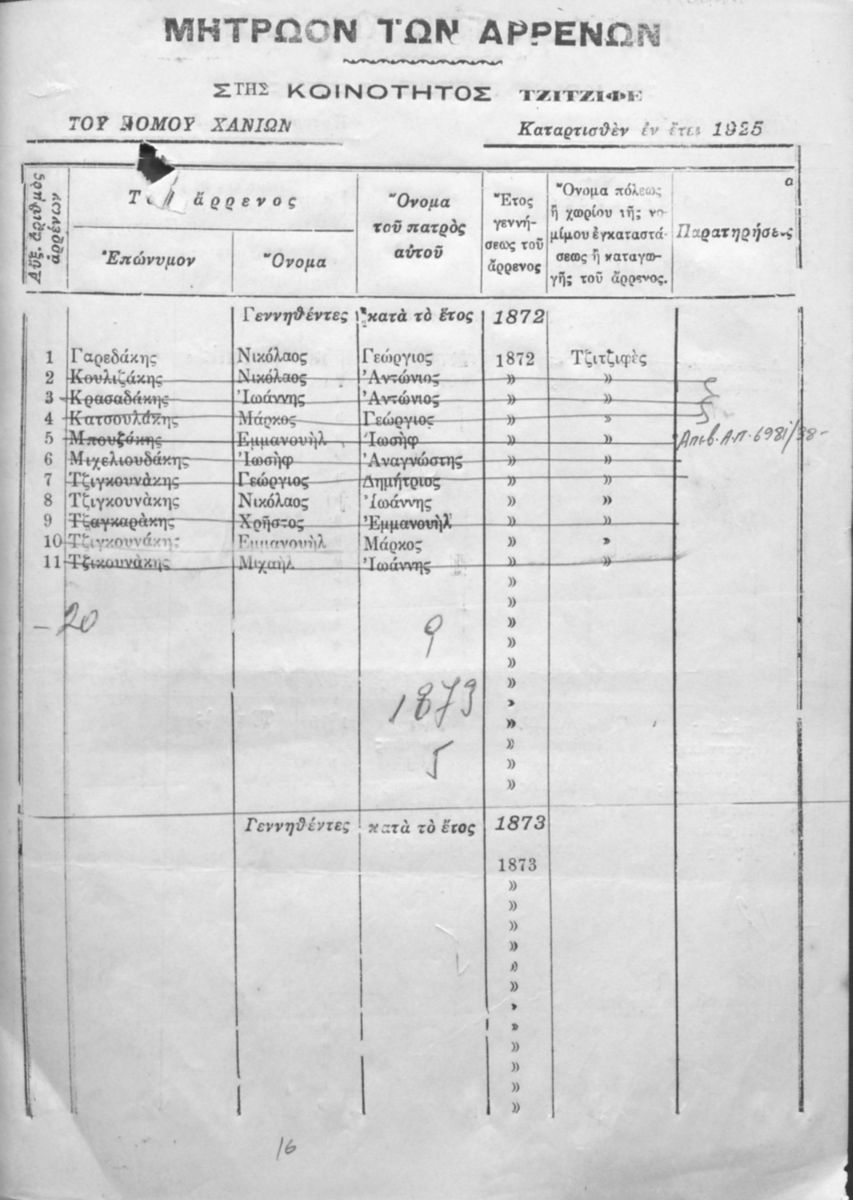 ΜΗΤΡΩΟΝ ΤΩΝ ΑΡΡΕΝΩΝ
ΣΤΗΣ ΚΟΙΝΟΤΗΤΟΣ ΤΖΙΤΖΙΦΕ
ΤΟΥ ΝΟΜΟΥ ΧΑΝΙΩΝ Καταρτισθὲν ἐν ἔτει 1925
Αὔξ. ἀριθμὸς ἀρρένων
ἄρρενος
Ἐπώνυμον Ὄνομα
Ὄνομα τοῦ πατρὸς αὐτοῦ
Ἔτος γεννήσεως τοῦ ἄρρενος
Ὄνομα πόλεως
ἢ χωρίου τῆς νο-
μίμου ἐγκαταστά-
σεως ἢ καταγω-
γῆς τοῦ ἄρρενος.
Παρατηρήσεις
α
Γεννηθέντες κατὰ τὸ ἔτος 1872
1 Γαρεδάκης Νικόλαος Γεώργιος 1872 Τζιτζιφὲς
2 Κουλιζάκης Νικόλαος Ἀντώνιος » »
3 Κρασαδάκης Ἰωάννης Ἀντώνιος » »
4 Κατσουλάκης Μάρκος Γεώργιος » »
5 Μπουζάκης Εμμανουὴλ Ἰωσὴφ » » Απεβ. Α.Π. 6981/38
6 Μιχελιουδάκης Ἰωσὴφ Ἀναγνώστης » »
7 Τζιγκουνάκης Γεώργιος Δημήτριος » »
8 Τζιγκουνὰκης Νικόλαος Ἰωάννης » »
9 Τζαγκαρὰκης Χρῆστος Ἐμμανουὴλ » »
10 Τζιγκουνάκης Εμμανουὴλ Μάρκος » »
11 Τζικουνὰκης Μιχαὴλ Ἰωάννης » »
»
»
– 20
»
9 »
»
»
1873 »
»
»
5 »
»
Γεννηθέντες κατὰ τὸ ἔτος 1873
1873
»
»
»
»
»
»
»
»
»
»
»
»
16